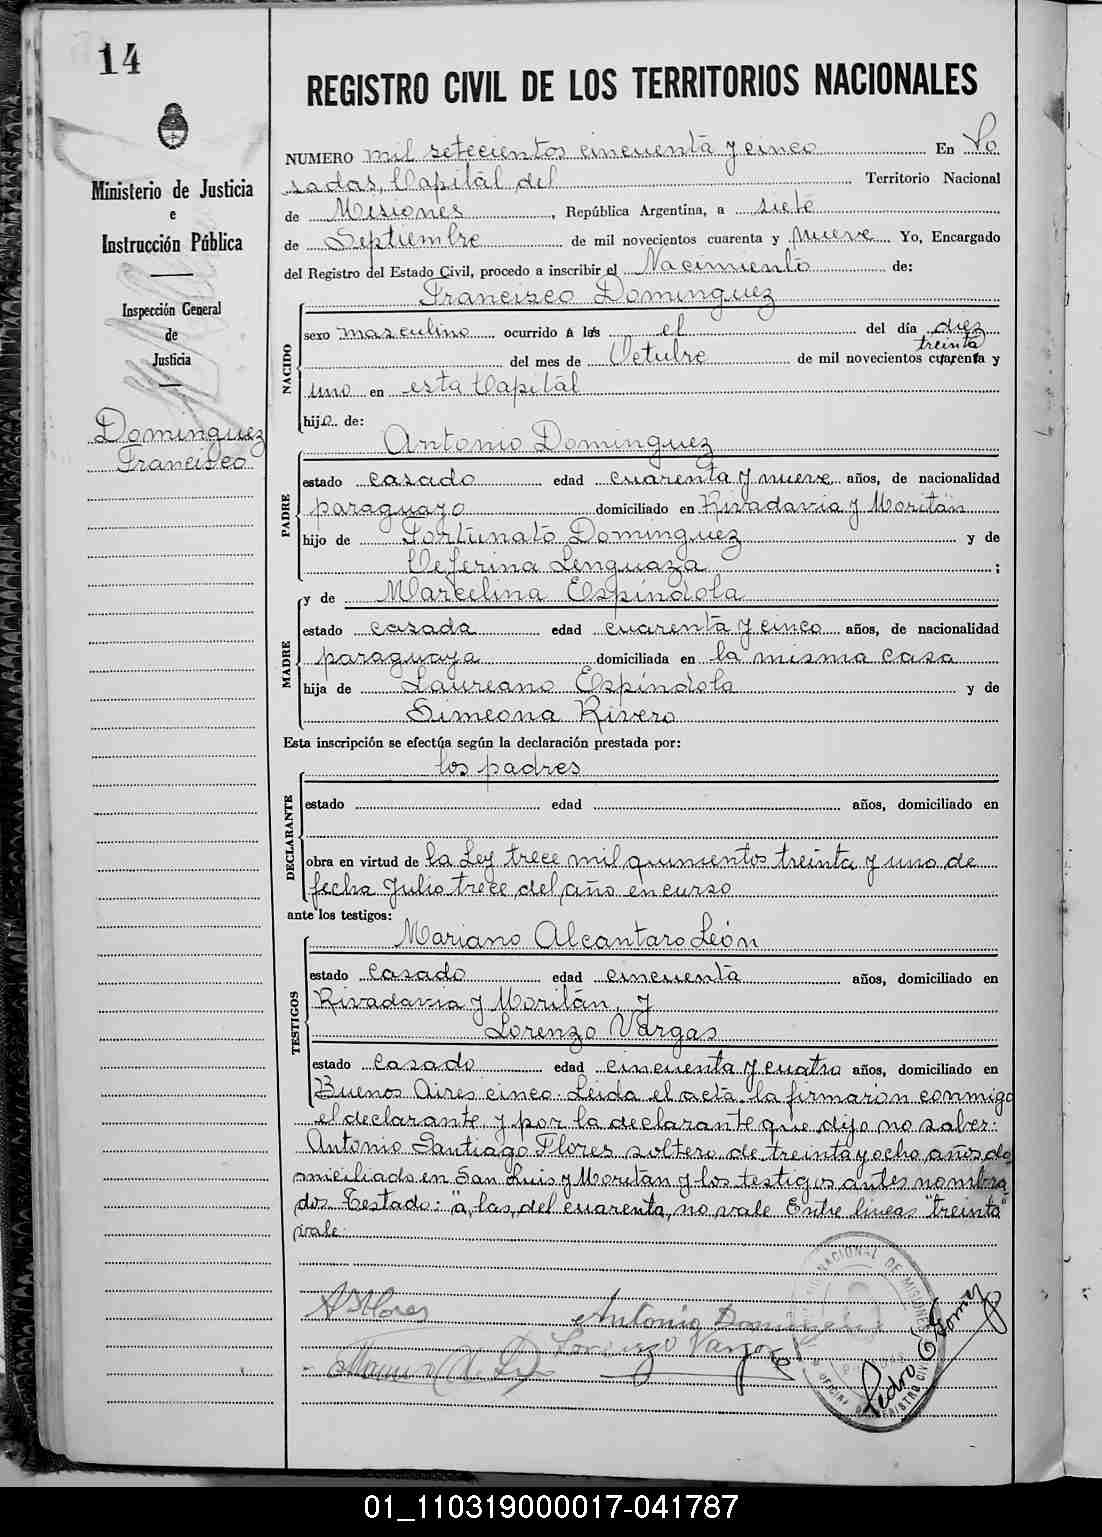 14
REGISTRO CIVIL DE LOS TERRITORIOS NACIONALES
Ministerio de Justicia
e
Instrucción Pública
Inspección General
de
Justicia
Dominguez
Francisco
NUMERO mil setecientos cincuenta y cinco En Po
sadas, Capital del Territorio Nacional
de Misiones, República Argentina, a siete
de Septiembre de mil novecientos cuarenta y nueve Yo, Encargado
del Registro del Estado Civil, procedo a inscribir el Nacimiento de:
NACIDO
Francisco Dominguez
sexo masculino ocurrido á las el del día diez
treinta
del mes de Octubre de mil novecientos cuarenta y
uno en esta Capital
hijo de:
PADRE
Antonio Dominguez
estado casado edad cuarenta y nueve años, de nacionalidad
paraguayo domiciliado en Rivadavia y Moritán
hijo de Fortunato Dominguez y de
Ceferina Lenguaza ;
MADRE
y de Marcelina Espíndola
estado casada edad cuarenta y cinco años, de nacionalidad
paraguaya domiciliada en la misma casa
hija de Laureano Espíndola y de
Simeona Rivero
Esta inscripción se efectúa según la declaración prestada por:
DECLARANTE
los padres
estado edad años, domiciliado en
obra en virtud de la Ley trece mil quinientos treinta y uno de
fecha Julio trece del año en curso
ante los testigos:
TESTIGOS
Mariano Alcantaro León
estado casado edad cincuenta años, domiciliado en
Rivadavia y Moritán, y
Lorenzo Vargas
estado casado edad cincuenta y cuatro años, domiciliado en
Buenos Aires cinco. Leida el acta la firmaron conmigo
el declarante y por la declarante que dijo no saber:
Antonio Santiago Flores soltero de treinta y ocho años do
miciliado en San Luis y Moritán y los testigos antes nombra
dos Testado: "a, las, del cuarenta, no vale Entre lineas "treinta"
vale
A S Flores
Antonio Dominguez
Lorenzo Vargas
Pedro E Gomez
01_110319000017-041787